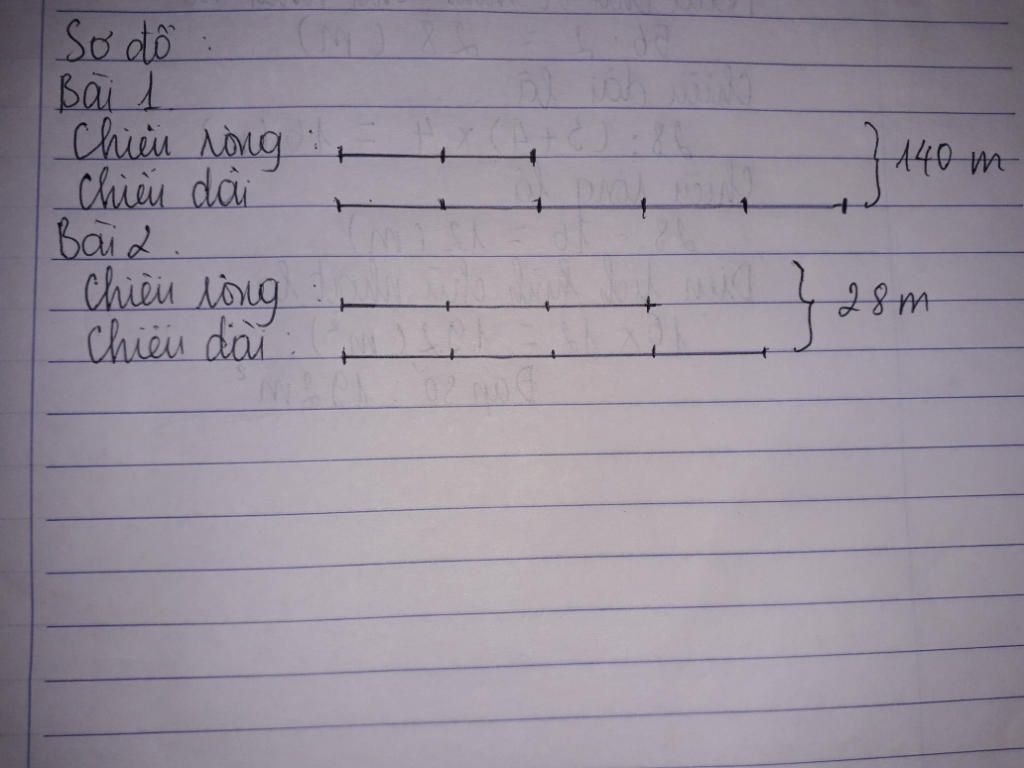 Sơ đồ :
Bài 1.
Chiều rộng : 140 m
Chiều dài
Bài 2.
Chiều rộng : 28 m
Chiều dài :